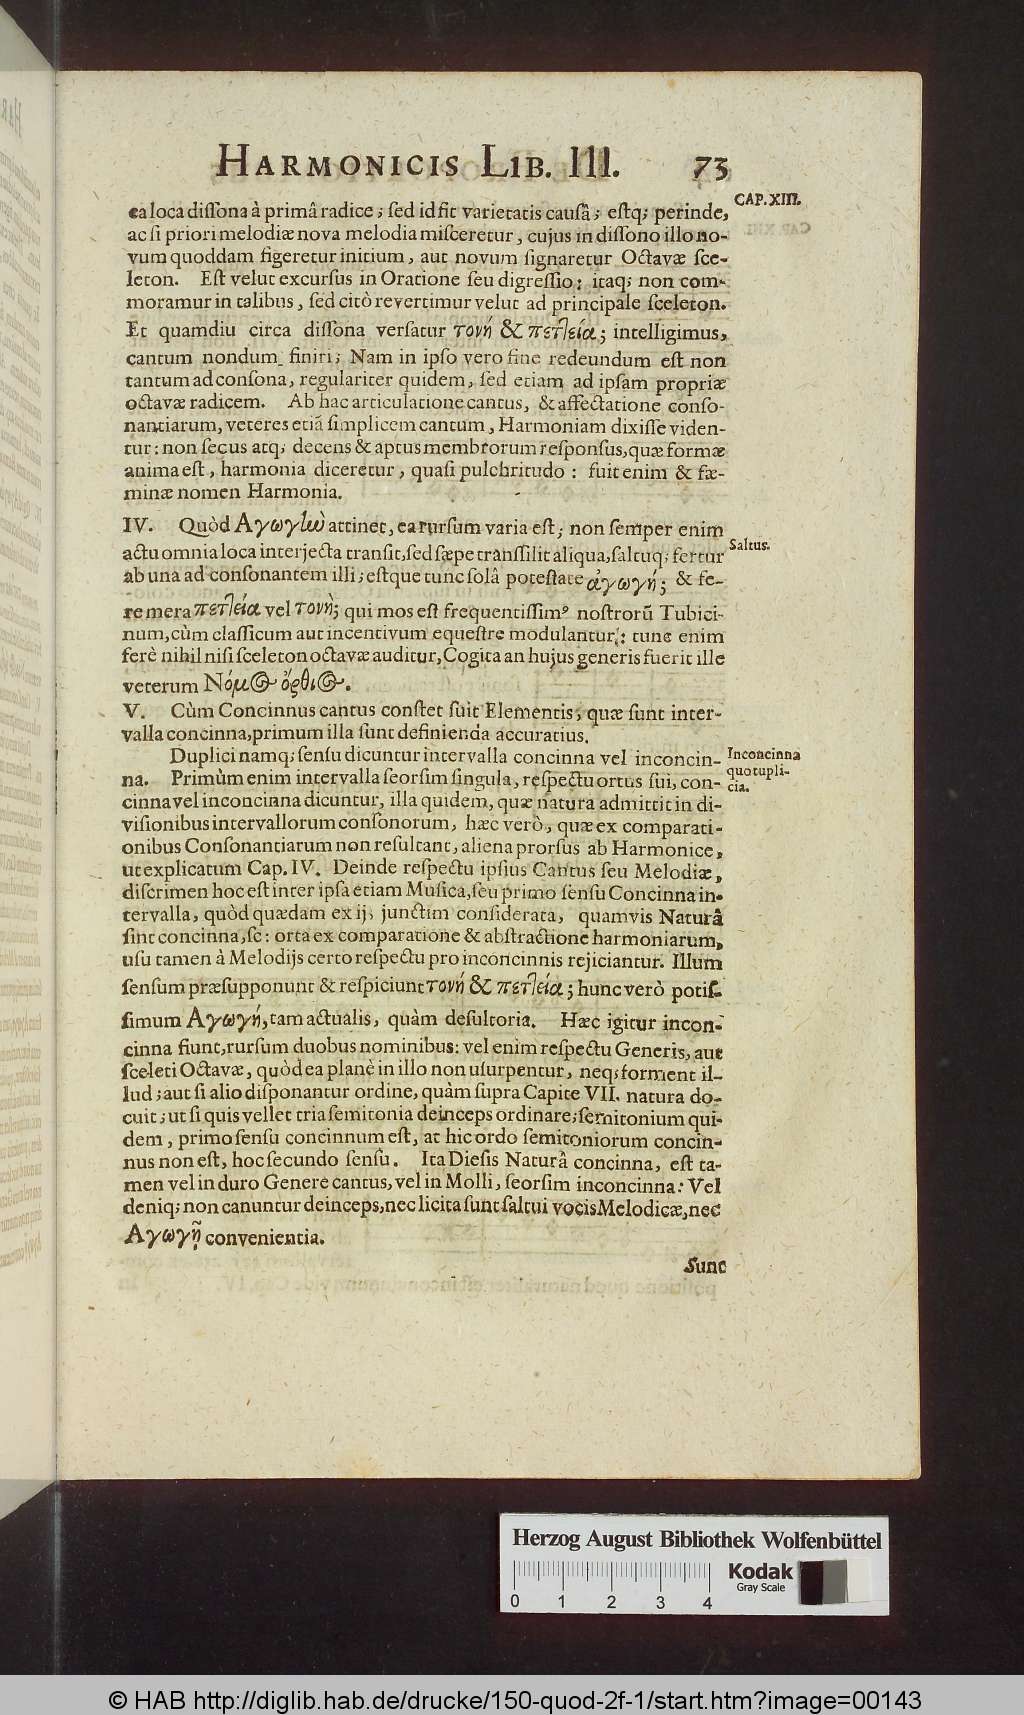 HARMONICIS LIB. III. 73
CAP. XIII.
ea loca dissona à primâ radice; sed id fit varietatis causâ; estq; perinde,
ac si priori melodiæ nova melodia misceretur, cujus in dissono illo no-
vum quoddam figeretur initium, aut novum signaretur Octavæ sce-
leton. Est velut excursus in Oratione seu digressio: itaq; non com-
moramur in talibus, sed citò revertimur velut ad principale sceleton.
Et quamdiu circa dissona versatur τονή & πετλεία; intelligimus,
cantum nondum finiri; Nam in ipso vero fine redeundum est non
tantum ad consona, regulariter quidem, sed etiam ad ipsam propriæ
octavæ radicem. Ab hac articulatione cantus, & affectatione conso-
nantiarum, veteres etiā simplicem cantum, Harmoniam dixisse viden-
tur: non secus atq; decens & aptus membrorum responsus, quæ formæ
anima est, harmonia diceretur, quasi pulchritudo: fuit enim & fæ-
minæ nomen Harmonia.
IV. Quòd Αγωγὼ attinet, ea rursum varia est; non semper enim
actu omnia loca interjecta transit, sed sæpe transsilit aliqua, saltuq; fertur
Saltus.
ab una ad consonantem illi; estque tunc solâ potestate ἀγωγή; & fe-
re mera πετλεία vel τονὴ; qui mos est frequentissimꝰ nostrorū Tubici-
num, cùm classicum aut incentivum equestre modulantur: tunc enim
ferè nihil nisi sceleton octavæ auditur, Cogita an hujus generis fuerit ille
veterum Νόμος ὄρθιος.
V. Cùm Concinnus cantus constet suis Elementis, quæ sunt inter-
valla concinna, primum illa sunt definienda accuratius.
Duplici namq; sensu dicuntur intervalla concinna vel inconcin-
Inconcinna
quotupli-
cia.
na. Primùm enim intervalla seorsim singula, respectu ortus sui, con-
cinna vel inconcinna dicuntur, illa quidem, quæ natura admittit in di-
visionibus intervallorum consonorum, hæc verò, quæ ex comparati-
onibus Consonantiarum non resultant, aliena prorsus ab Harmonice,
ut explicatum Cap. IV. Deinde respectu ipsius Cantus seu Melodiæ,
discrimen hoc est inter ipsa etiam Musica, seu primo sensu Concinna in-
tervalla, quòd quædam ex ij, junctim considerata, quamvis Naturâ
sint concinna, sc: orta ex comparatione & abstractione harmoniarum,
usu tamen à Melodijs certo respectu pro inconcinnis rejiciantur. Illum
sensum præsupponunt & respiciunt τονή & πετλεία; hunc verò potis-
simum Αγωγή, tam actualis, quàm desultoria. Hæc igitur incon-
cinna fiunt, rursum duobus nominibus: vel enim respectu Generis, aut
sceleti Octavæ, quòd ea planè in illo non usurpentur, neq; forment il-
lud; aut si alio disponantur ordine, quàm supra Capite VII. natura do-
cuit; ut si quis vellet tria semitonia deinceps ordinare; semitonium qui-
dem, primo sensu concinnum est, at hic ordo semitoniorum concin-
nus non est, hoc secundo sensu. Ita Diesis Naturâ concinna, est ta-
men vel in duro Genere cantus, vel in Molli, seorsim inconcinna: Vel
deniq; non canuntur deinceps, nec licita sunt saltui vocis Melodicæ, nec
Αγωγῇ convenientia.
Sunt
Herzog August Bibliothek Wolfenbüttel
Kodak
Gray Scale
0 1 2 3 4
© HAB http://diglib.hab.de/drucke/150-quod-2f-1/start.htm?image=00143